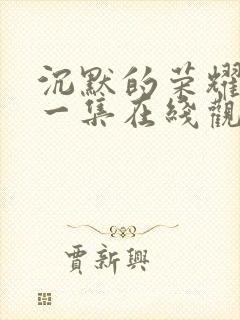 沉默的荣耀
一集在綫觀
賈新興